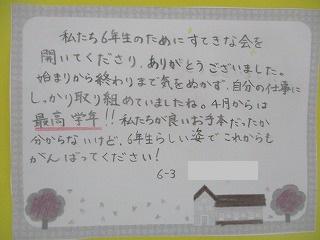 私たち6年生のためにすてきな会を
開いてくださり、ありがとうございました。
始まりから終わりまで気をぬかず、自分の仕事に
しっかり取り組めていましたね。4月からは
最高学年!!私たちが良いお手本だったか
分からないけど、6年生らしい姿でこれからも
がんばってください!
6-3